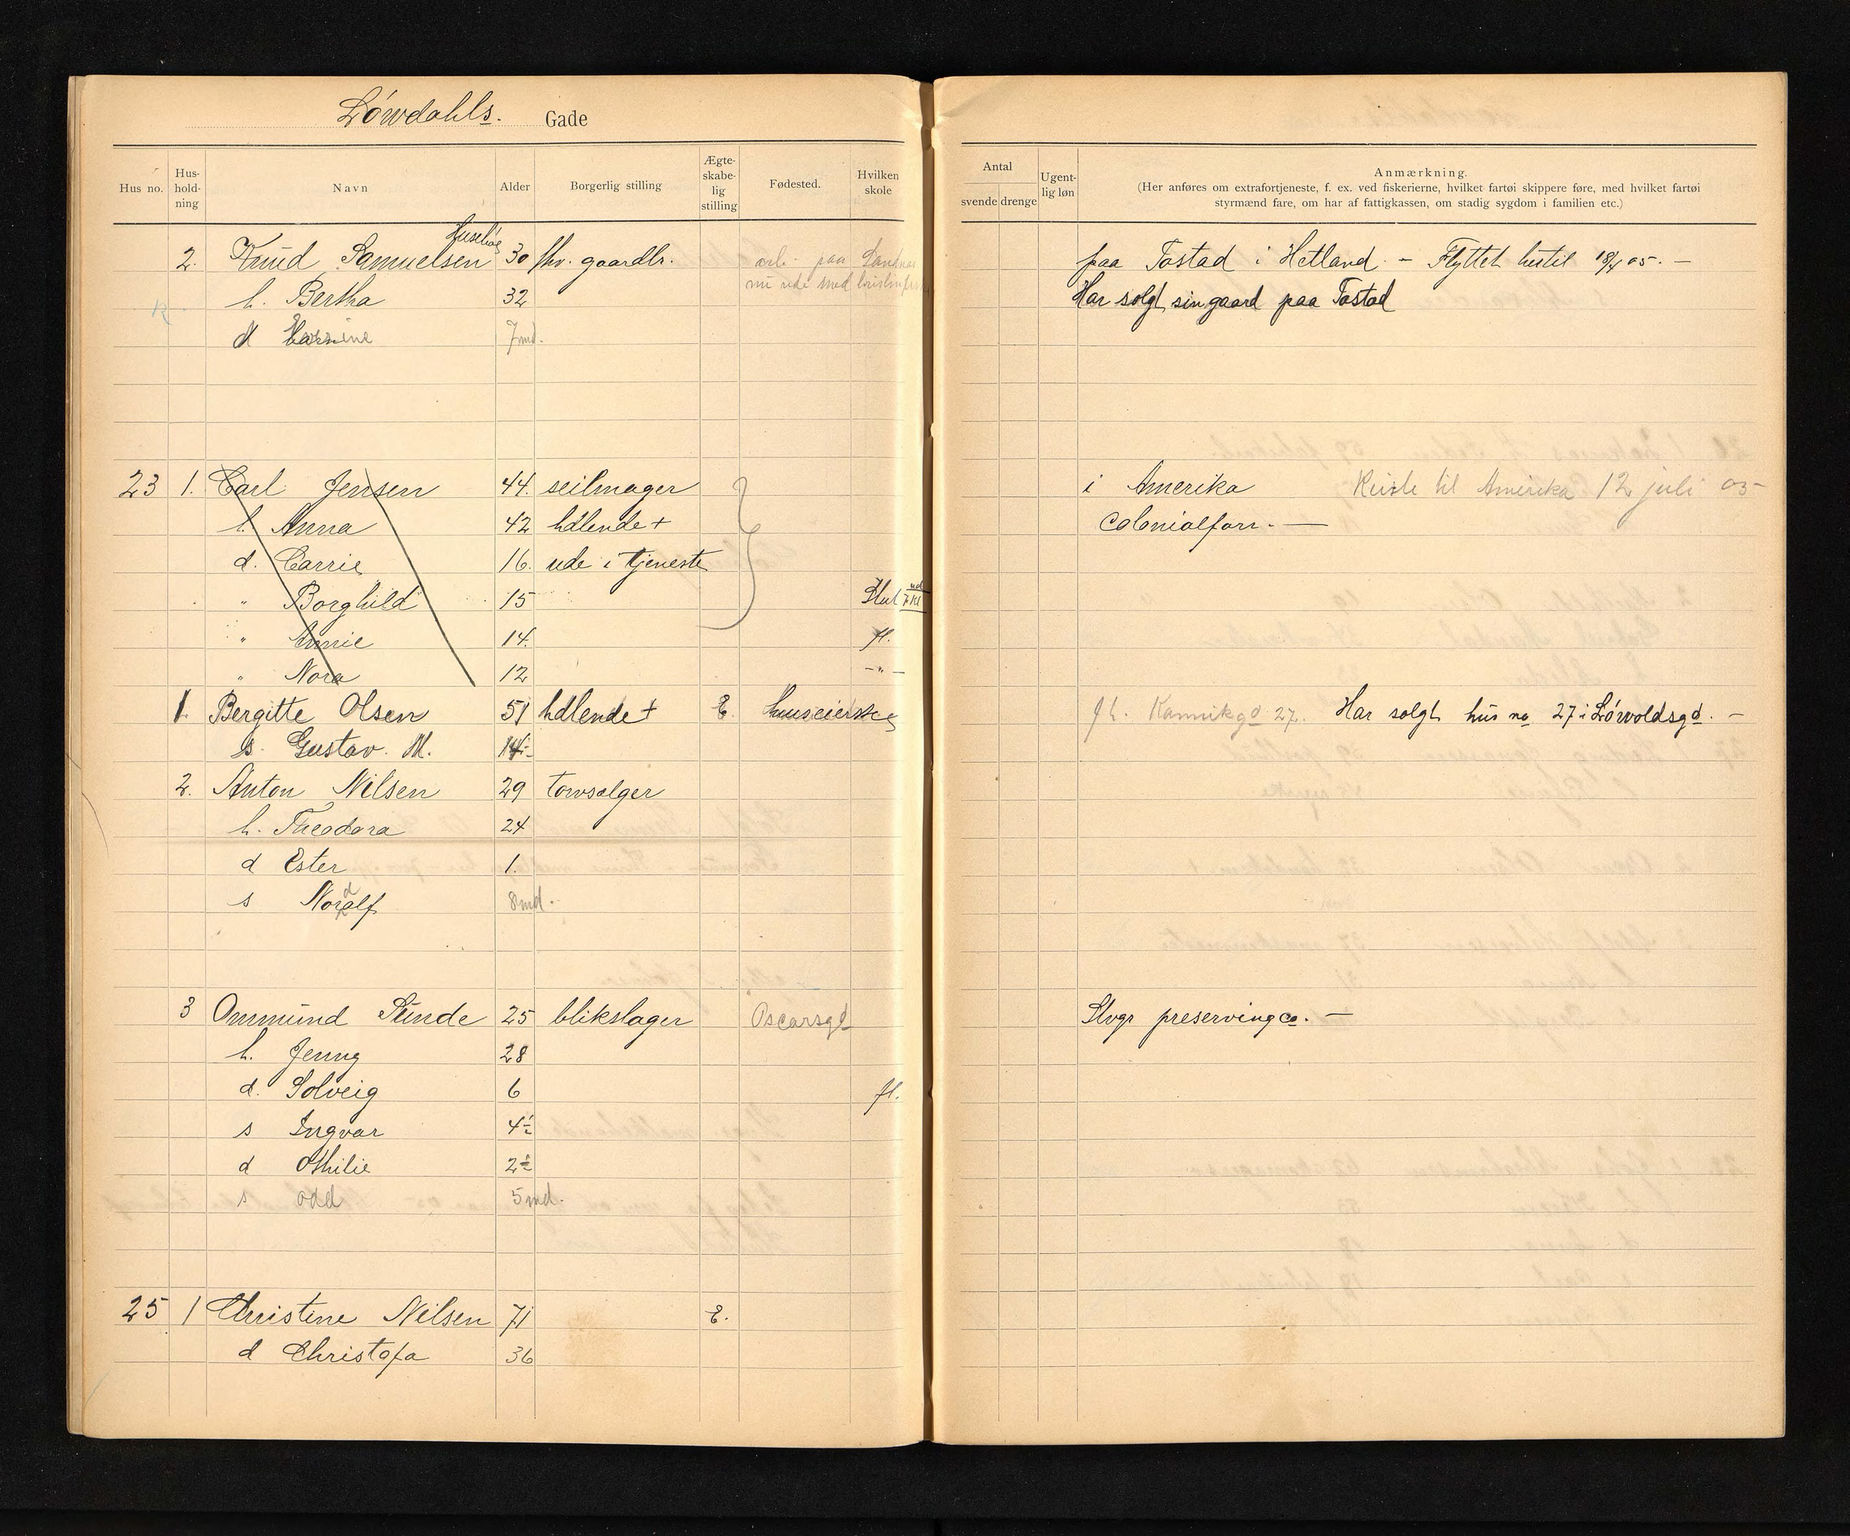 Løwdahls. Gade
Hus no. Hus-hold-ning Navn Alder Borgerlig stilling Ægte-skabe-lig stilling Fødested. Hvilken skole
Antal svende drenge Ugent-lig løn Anmærkning.
(Her anføres om extrafortjeneste, f. ex. ved fiskerierne, hvilket fartøi skippere føre, med hvilket fartøi
styrmænd fare, om har af fattigkassen, om stadig sygdom i familien etc.)
2. Knud Samuelsen 30 fhv. gaardbr. paa Tastad i Hetland - Flyttet hertil 18/4 05. -
h. Bertha 32 Har solgt sin gaard paa Tastad
d 7 md.
23 1. Carl Jensen 44. seilmager i Amerika Reiste til Amerika 12 juli 05
h. Anna 42 hdlende + Colonialforr. —
d. Carrie 16. ude i tjeneste
" Borghild 15
" Annie 14. fl.
" Nora 12 -"-
1. Bergitte Olsen 51 hdlende + E. huseierske fl. Kannikgd 27. Har solgt hus no 27 i Løvoldsgd. -
s. Gustav. M. 14
2. Anton Nilsen 29 towsælger
h. Theodora 24
d Ester 1.
s Nordalf 8 md.
3 Ommund Sunde 25 blikslager Oscarsgt Stvgr preserving co. -
h. Jenny 28
d. Solveig 6 fl.
s Ingvar 4½
d Othilie 2½
s odd 5 md.
25 1 Christine Nilsen 71 E.
d Christofa 36